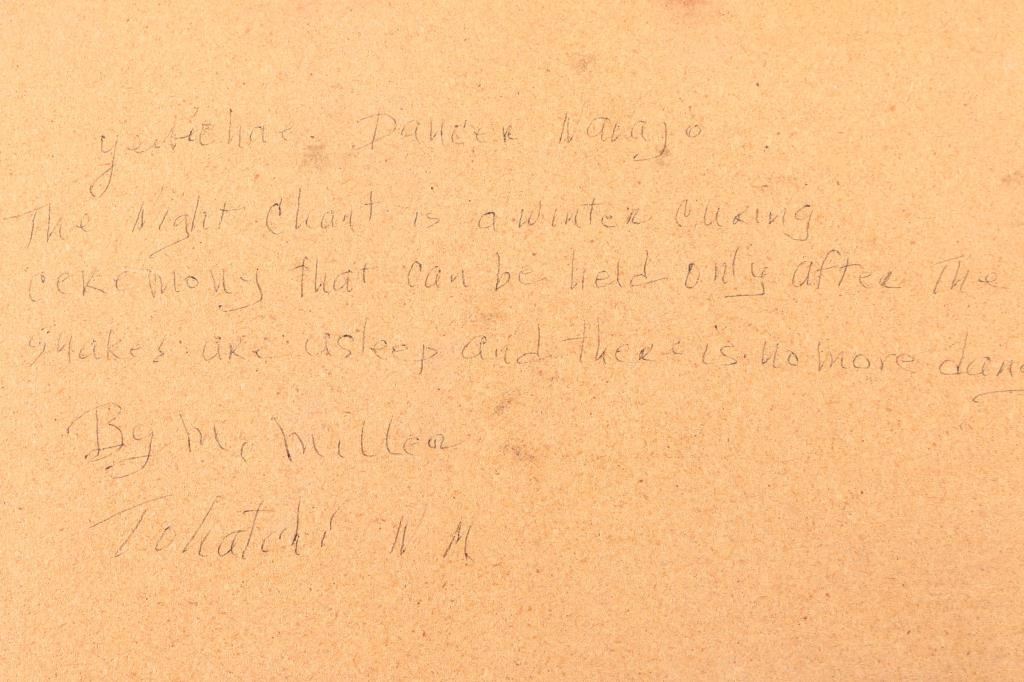 yeibichae. Dancer Navajo
The Night Chant is a winter curing
ceremony that can be held only after The
snakes are asleep and there is no more dang
By M. Miller
Tohatchi N M